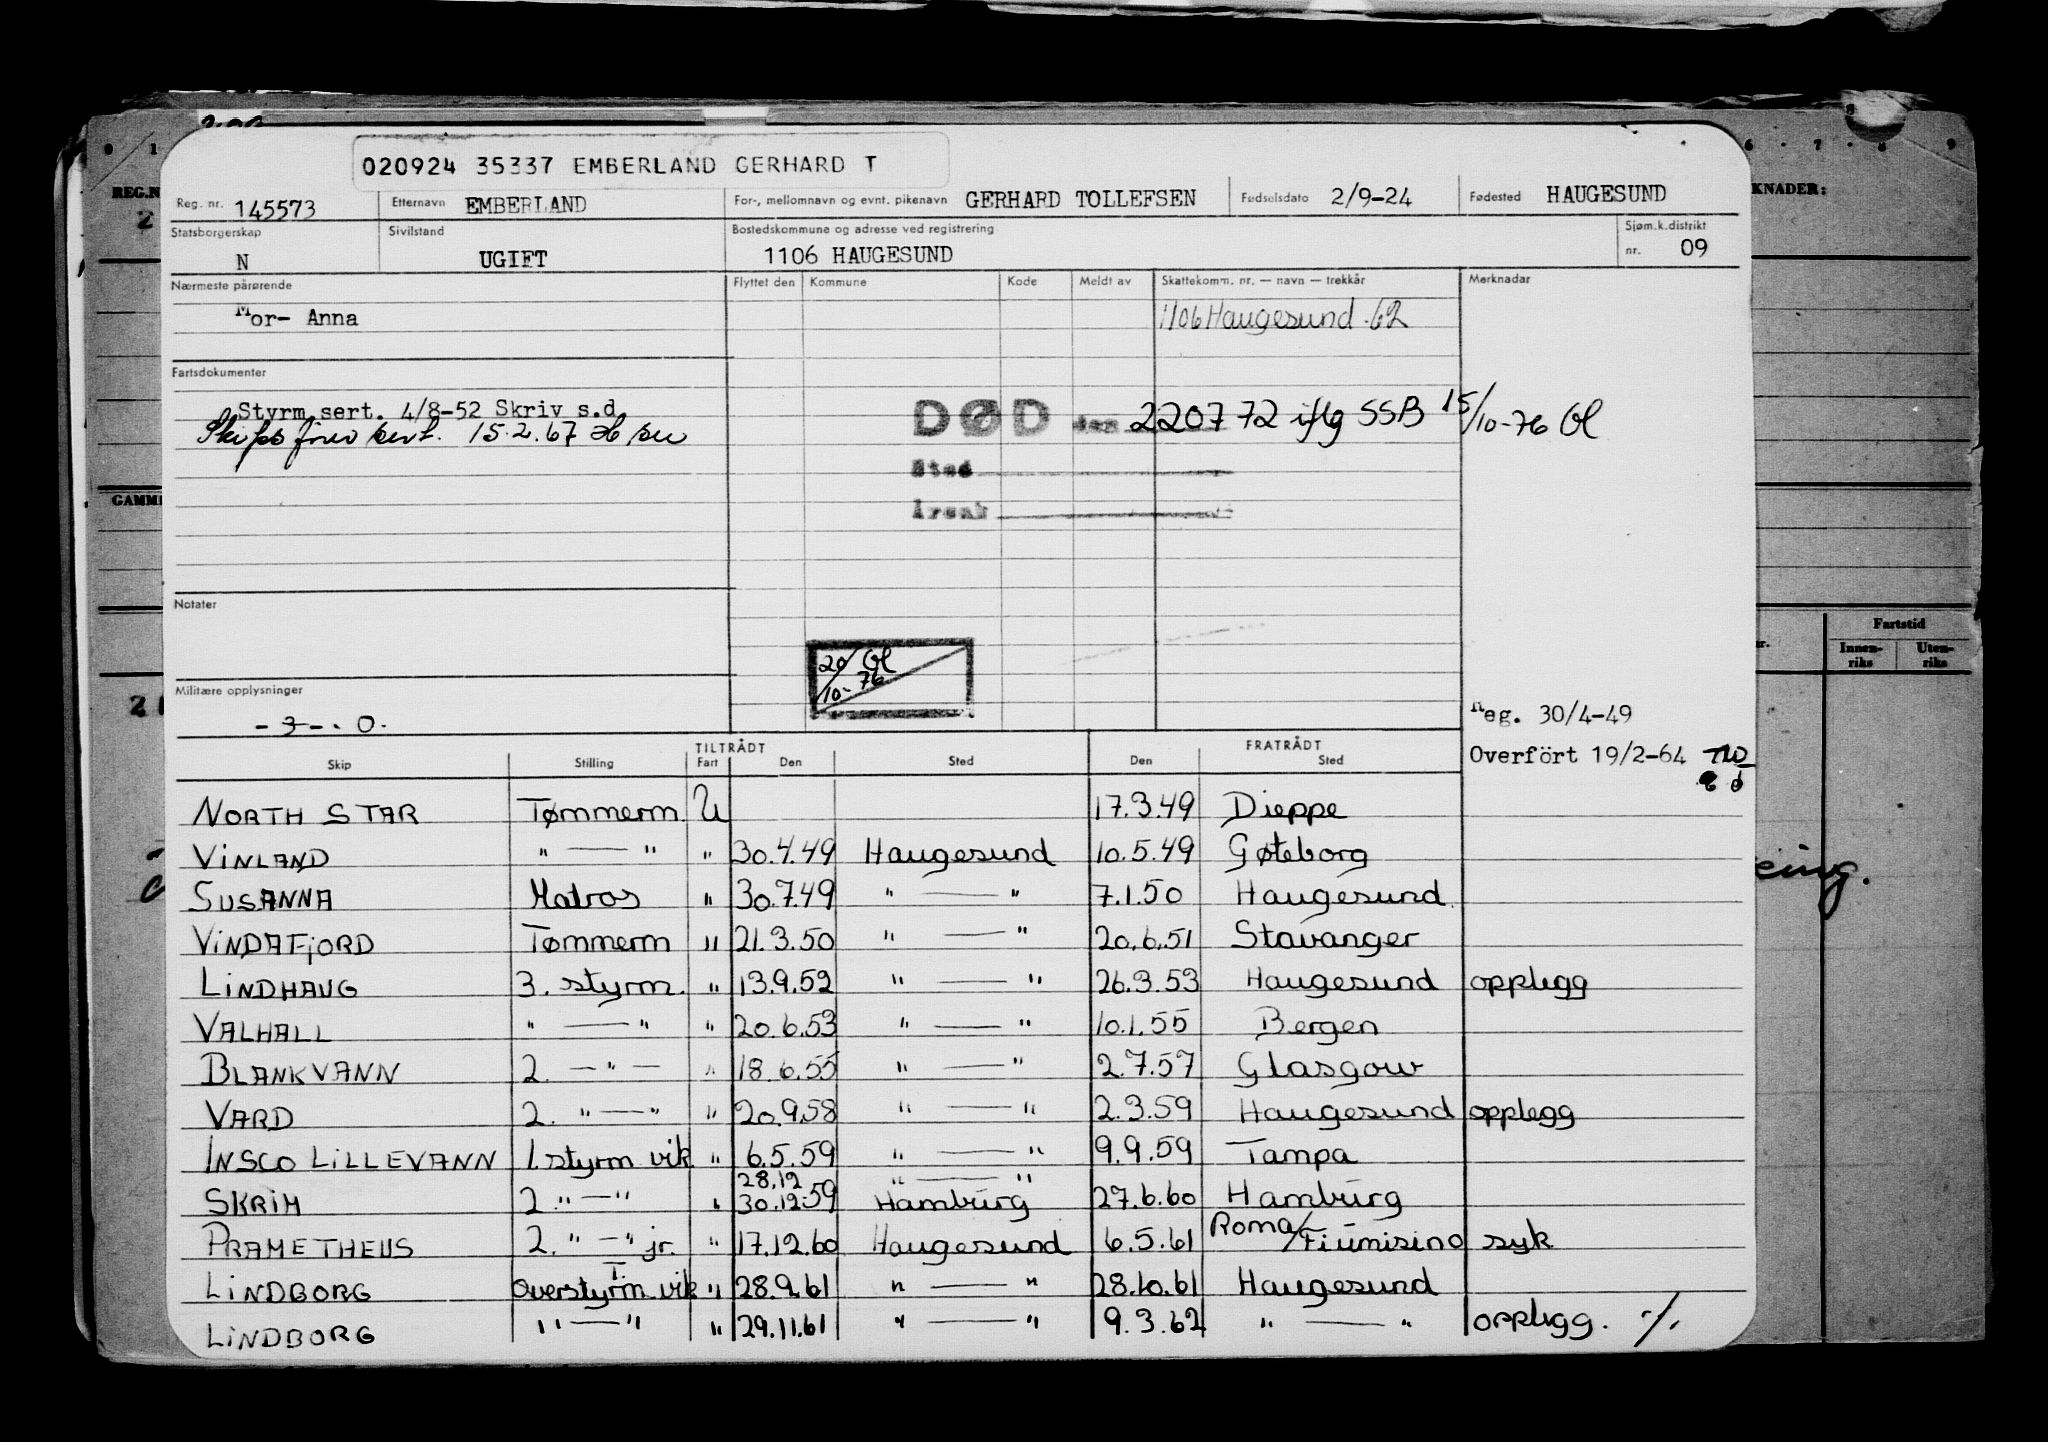 020924 35337 EMBERLAND GERHARD T
Reg. nr. 145573 Etternavn EMBERLAND For-, mellomnavn og evnt. pikenavn GERHARD TOLLEFSEN Fødselsdato 2/9-24 Fødested HAUGESUND
Statsborgerskap N Sivilstand UGIFT Bostedskommune og adresse ved registrering 1106 HAUGESUND Sjøm.k.distrikt nr. 09
Nærmeste pårørende Flyttet den Kommune Kode Meldt av Skattekomm. nr. — navn — trekkår Merknader
Mor- Anna 1106 Haugesund .62
Fartsdokumenter
Styrm.sert. 4/8-52 Skriv s.d
Skipsfører sert. 15.2.67
DØD den 220772 iflg SSB 15/10-76 Ol
Sted
Årsak
Notater
20/10-76 Ol
Militære opplysninger
- 3 - . 0.
Reg. 30/4-49
Overfört 19/2-64
TILTRÅDT FRATRÅDT
Skip Stilling Fart Den Sted Den Sted
NORTH STAR Tømmerm. U 17.3.49 Dieppe
VINLAND " — " " 30.4.49 Haugesund 10.5.49 Gøteborg
SUSANNA Matros " 30.7.49 " — " 7.1.50 Haugesund
VINDAFJORD Tømmerm " 21.3.50 " — " 20.6.51 Stavanger
LINDHAUG 3. styrm. " 13.9.52 " — " 26.3.53 Haugesund opplegg
VALHALL " — " " 20.6.53 " — " 10.1.55 Bergen
BLANKVANN 2. — " — " 18.6.55 " — " 2.7.57 Glasgow
VARD 2. " — " " 20.9.58 " — " 2.3.59 Haugesund opplegg
INSCO LILLEVANN 1. styrm vik " 6.5.59 " — " 9.9.59 Tampa
28.12 " — "
SKRIM 2. " — " " 30.12.59 Hamburg 27.6.60 Hamburg
PRAMETHEUS 2. " — " jr. " 17.12.60 Haugesund 6.5.61 Roma/Fiumisino syk
LINDBORG Overstyrm vik " 28.9.61 " — " 28.10.61 Haugesund
LINDBORG " — " " 29.11.61 " — " 9.3.62 " — " opplegg. ./.
REG.N
GAMM
KNADER:
Fartstid
Innenriks Utenriks